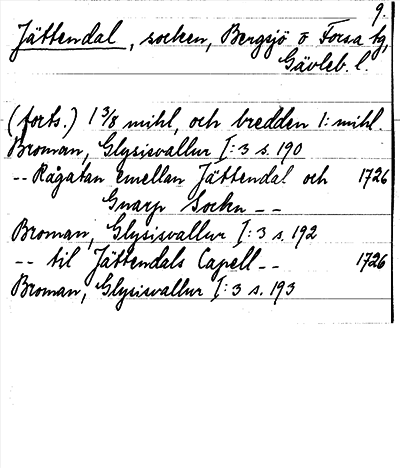 9.
Jättendal, socken, Bergsjö o Forsa tg,
Gävleb. l.
(forts.) 1 3/8 mihl, och bredden 1: mihl.
Broman, Glysisvallur I:3 s. 190
-- Rågatan emellan Jättendal och 1726
Gnarp Sockn --
Broman, Glysisvallur I:3 s. 192
-- til Jättendals Capell -- 1726
Broman, Glysisvallur I:3 s. 193